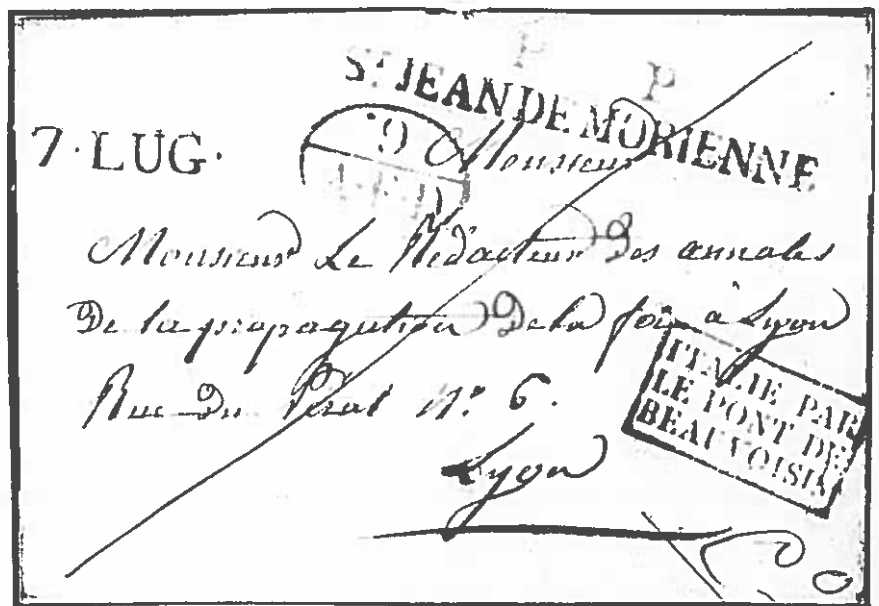 P P
ST JEAN DE MORIENNE
7 · LUG ·
19
Monsieur
Monsieur Le Rédacteur Des annales
De la propagation De la foi à Lyon
Rue Du Pérat N.º 6.
Lyon
ITALIE PAR
LE PONT DE
BEAUVOISIN